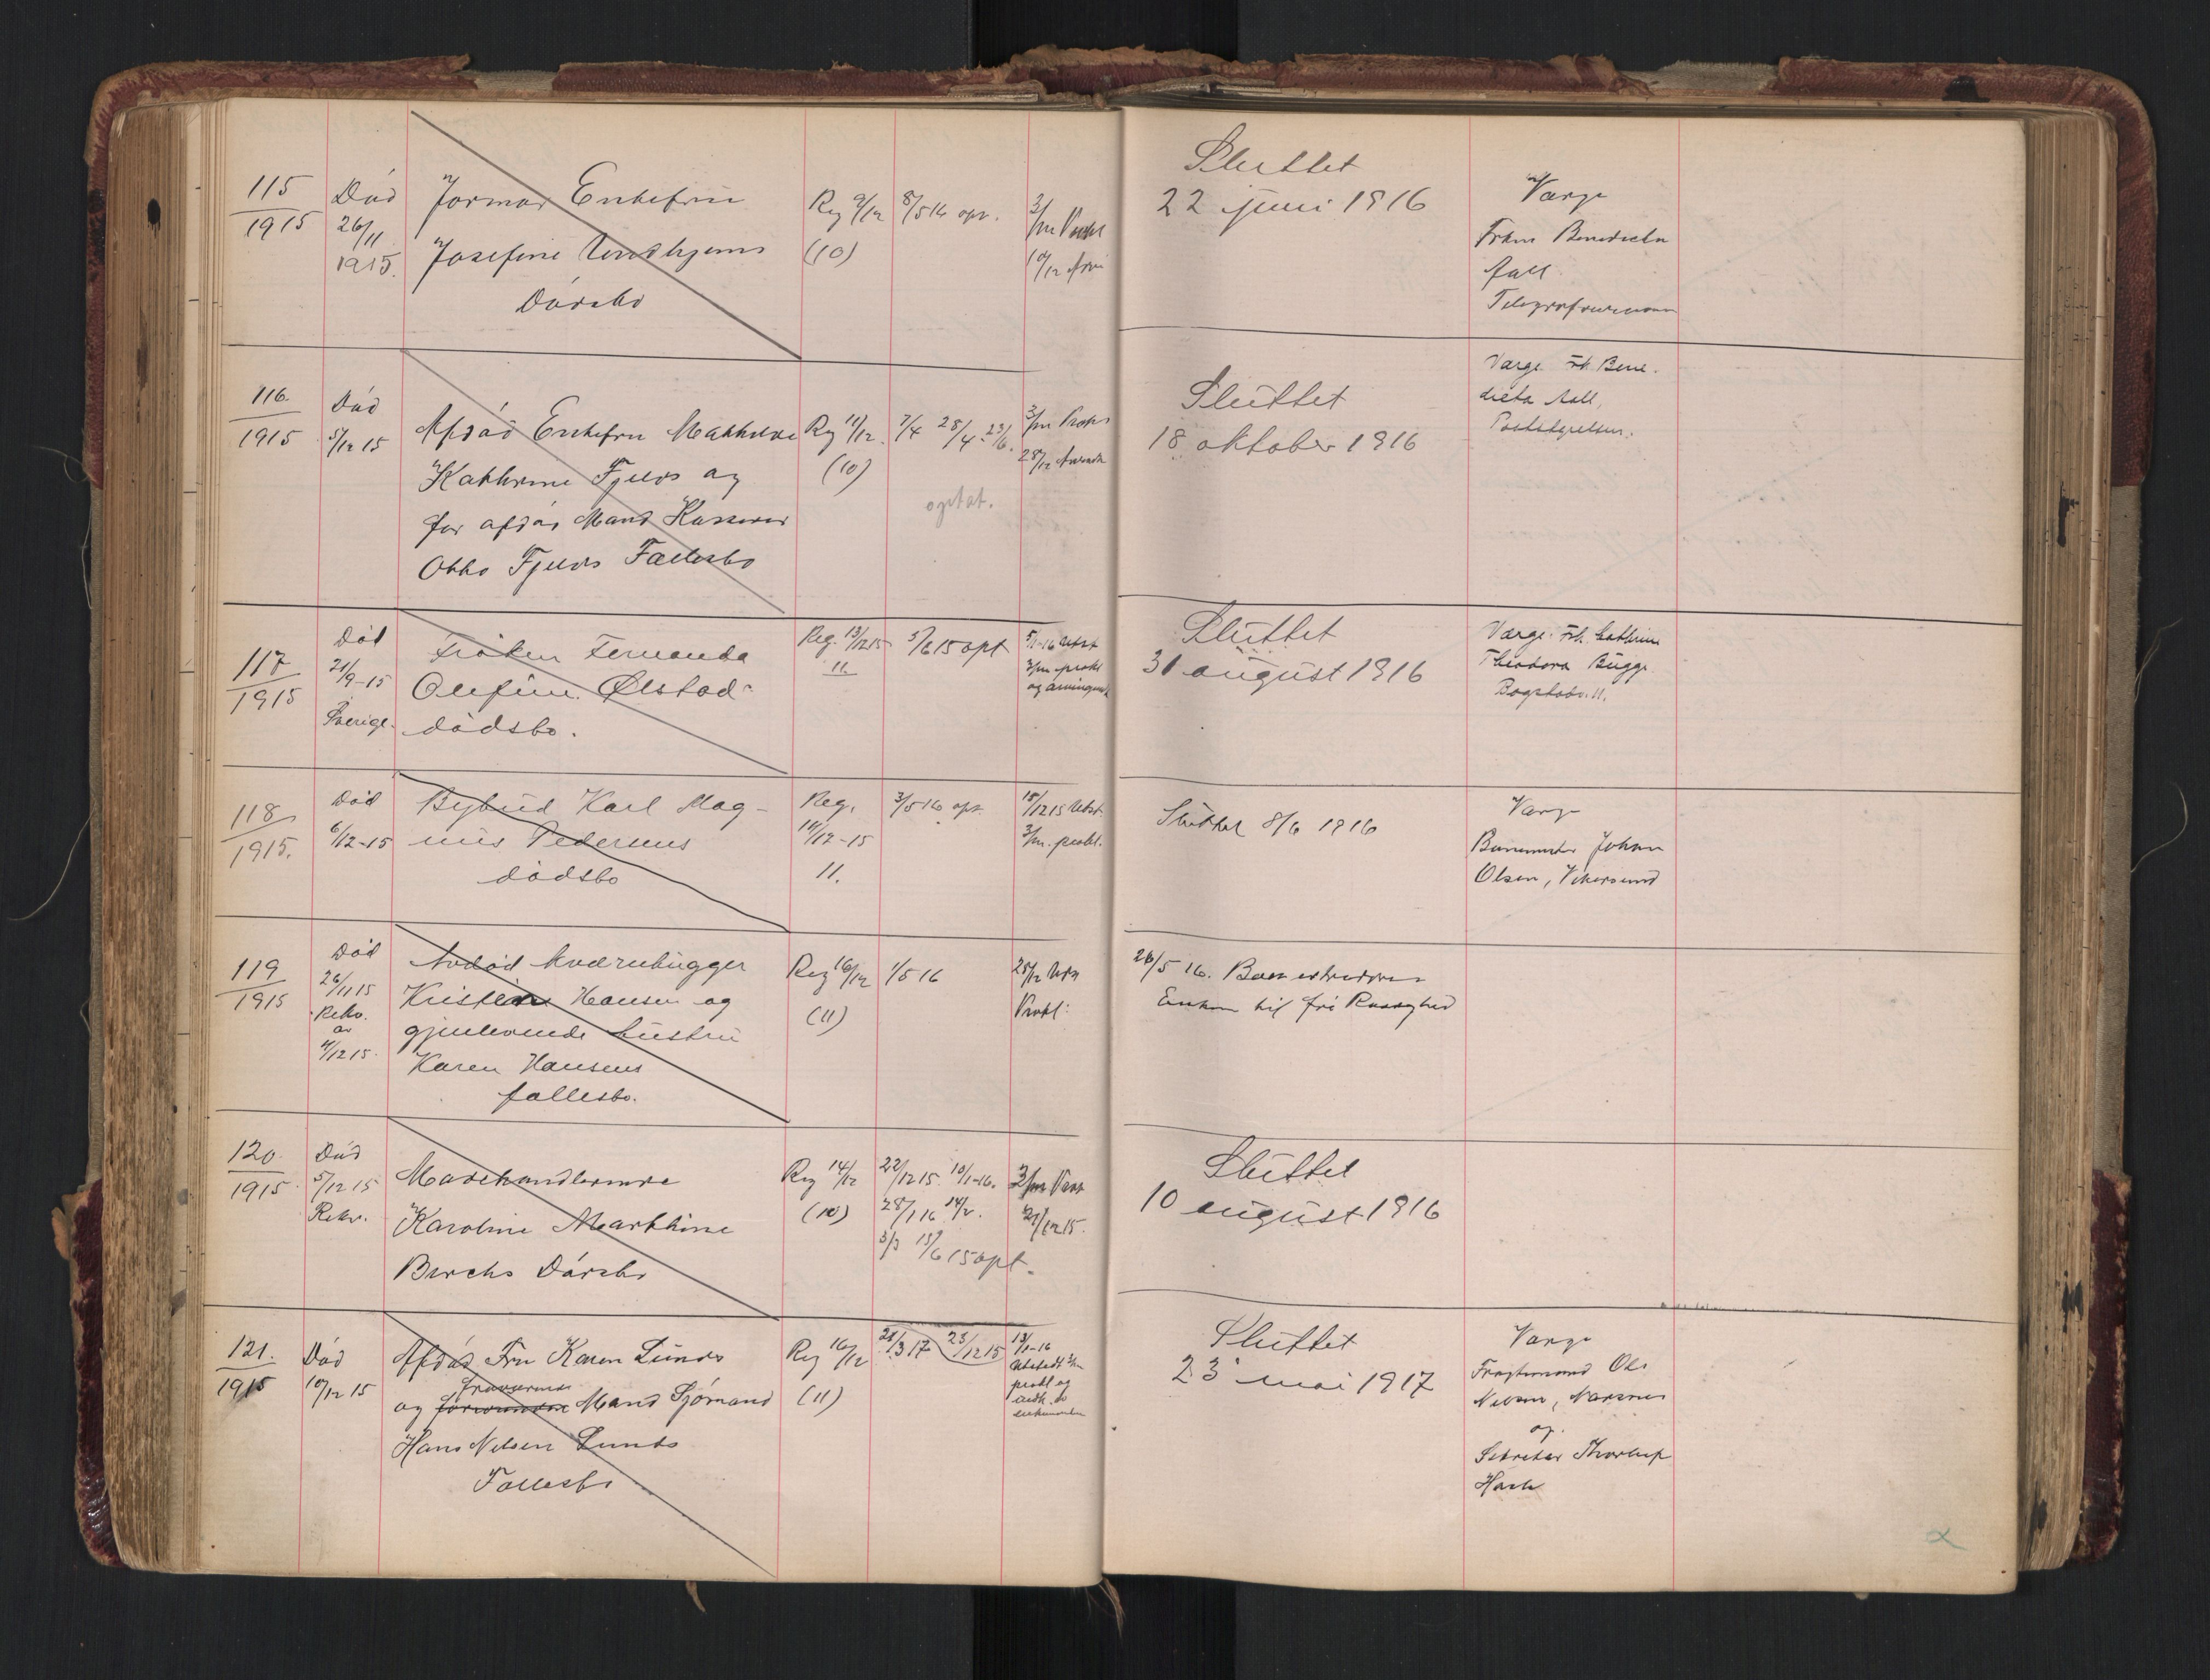 115
1915
Død
26/11
1915.
Jormor Enkefru
Josefine Lindhjems
Dødsbo
Reg 9/12
(10)
8/5 16 opr.
3/m Prokl
10/12
Sluttet
22 juni 1916
Verge
Frkn Benedicta
Aall
116.
1915
Død
5/12 15
Afdød Enkefru Mathilde
Kathrine Fjelds og
før afdøde Mand Kasserer
Otto Fjelds Fællesbo
Reg 11/12.
(10)
7/4 28/4 23/6.
optat.
3/m Prokl
28/12
Sluttet
18 oktober 1916
Verge Frk. Bene-
dicta Aall,
Poststyrelsen.
117
1915
Død
21/9-15
Sverige.
Frøken Fernanda
Olefine Ølstad
dødsbo.
Reg. 13/12 15
11.
5/6 15 opt
5/1-16 Utst
3/m prokl
Sluttet
31 august 1916
Verge: Frk. Cathrine
Theodora Bugge
Bogstadv. 11.
118
1915.
Død
6/12-15
Bybud Karl Mag-
nus Pedersens
dødsbo
Reg.
14/12-15
11.
3/5 16 opt.
15/12 15 Utst.
3/m. prokl.
Sluttet 8/6 1916
Verge
Banemester Johan
Olsen, Vikersund
119
1915
Død
26/11 15
Rekv.
av
4/12 15.
Avdød kværnhugger
Kristian Hansen og
gjenlevende hustru
Karen Hansens
fællesbo.
Reg 16/12
(11)
1/5 16
25/12 Utst
Prokl:
26/5 16. Boet extraderes
Enken til fri Raadighed
120.
1915
Død
5/12 15
Rekv.
Madehandlerinde
Karoline Marthine
Berchs Dødsbo
Reg 14/12
(10)
22/12 15. 10/1-16.
28/1 16 14/2.
3/3 15/6 15 opt.
21/12 15.
Sluttet
10 august 1916
121.
1915
Død
10/12 15
Afdød Fru Karen Lunds
fraværende
og Mand Sjømand
Hans Nilsen Lunds
Fællesbo
Reg 16/12
(11)
21/3 17 23/12 15
13/1-16
Utstedt 3/m
prokl og
Sluttet
23 mai 1917
Verge
Fragtemand Ole
Nilsen, Nærsnes
og
Sekretær Thorleif